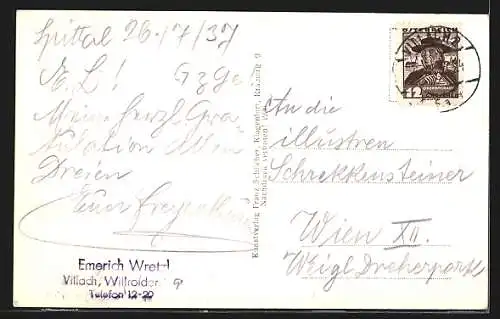 Spittal 26/7/37
E. L! Gzge!
Meine herzl. Gra-
tulation Allen
Dreien
Euer
Emerich Wretl
Villach, Willroider 9
Telefon 12-20
Kunstverlag Franz Schilcher, Klagenfurt, Radetzkg 9
Nachdruck verboten
An die
illustren
Schrekkensteiner
Wien XII.
Weigl Dreherpark
ÖSTERREICH
12